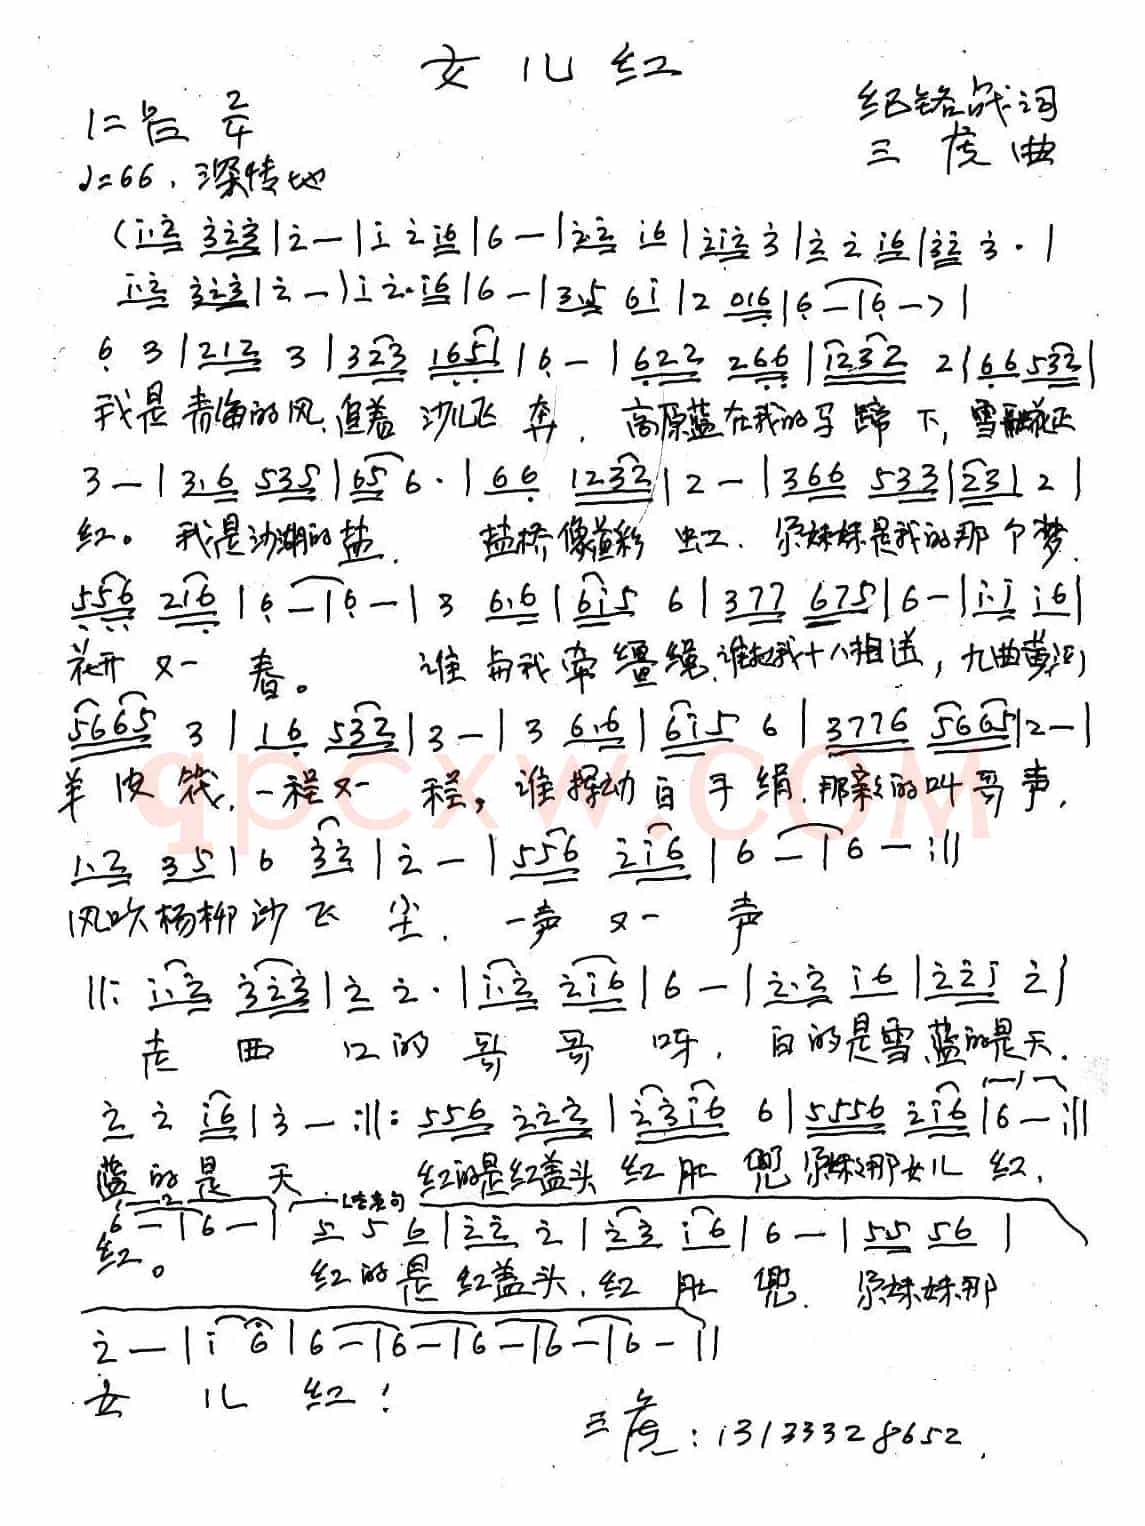 女儿红
1=♭E 2/4
纪铭战词
♩=66. 深情地
三虎曲
(i·2 323|2 —|i 2 i6|6 —|2·2 i6|2i2 3|2 2 i6|32 3 ·|
i·2 323|2 —|i 2· i6|6 —|3·5 6i|2 016|6 —|6 —)|
6 3|212 3|323 1651|6 —|622 266|1232 2|66 532|
我是青海的风,追着沙儿飞奔,高原蓝在我的马蹄下,雪融花正
3 —|3·6 535|65 6 ·|66 1232|2 —|366 533|231 2|
红。我是沙湖的盐.盐桥像道彩虹.尕妹妹是我的那个梦.
556 2i6|6 —|6 —|3 6·6|6i5 6|377 675|6 —|i·i i6|
花开又一春。谁与我牵缰绳,谁把我十八相送,九曲黄河
5665 3|16 532|3 —|3 6·6|6i5 6|3776 5665|2 —|
羊皮筏,一程又一程,谁挥动白手绢,那亲亲的叫哥声,
qpcxw.com
1·2 35|6 32|2 —|556 2i6|6 —|6 — :||
风吹杨柳沙飞尘.一声又一声
||: i·2 323|2 2 ·|i·2 2i6|6 —|2·2 i6|22i 2|
走西口的哥哥呀,白的是雪,蓝的是天.
2 2 i6|3 — :||: 556 222|23i6 6|5556 2i6|6 — :||
蓝的是天 红的是红盖头 红肚兜 尕妹妹那女儿红,
2. 结束句
6 —|6 —| 5 5 6|22 2|23 i6|6 —|55 56|
红。红的是红盖头,红肚兜.尕妹妹那
2 —|i 6|6 —|6 —|6 —|6 —|6 —||
女儿红!
三虎:13133328652.